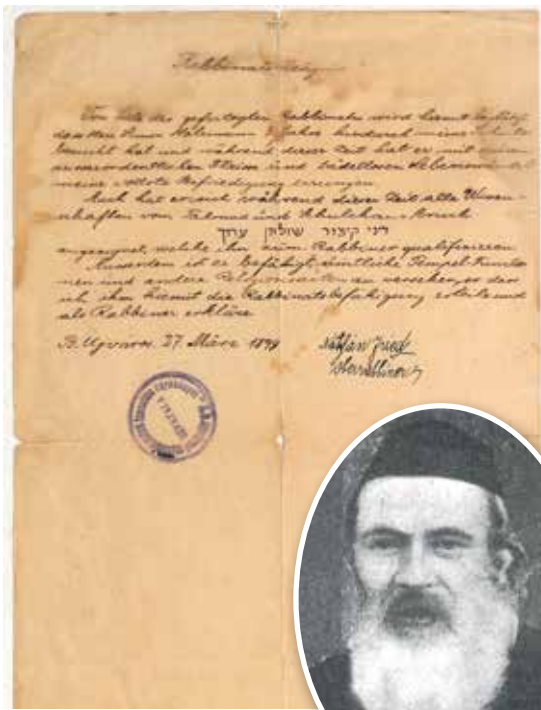 Von Seite des gefertigten Rabbinates wird hiermit bestätigt
dass Herr 8 Jahre hindurch meine Schule
besucht hat und während dieser Zeit hat er mit
ausserordentlichen Fleiss und tadellosen Lebenswandel
meine vollste Befriedigung errungen.
Auch hat er sich während dieser Zeit alle Wissen-
schaften von Talmud und Schulchan-Aruch
דיני קיצור שולחן ערוך
angeeignet, welche ihn zum Rabbiner qualifizieren.
Ausserdem ist er befähigt, sämtliche Tempel-Funktio-
nen und andere zu versehen, so dass
ich ihm hiermit die Rabbinatsbefähigung erteile und
als Rabbiner erkläre
B. Ujvaros, 27 März 1899
Nathan Fried
Oberrabbiner